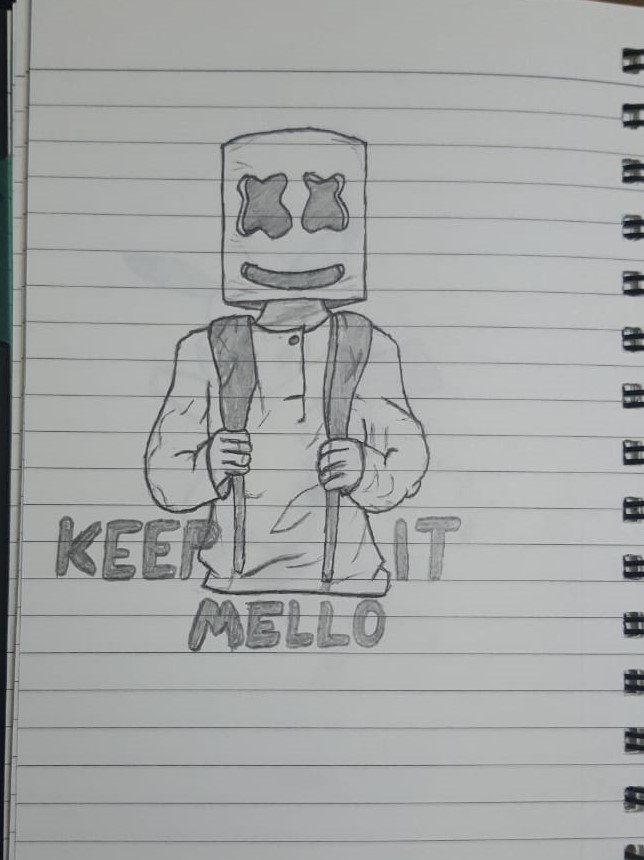 KEEP IT
MELLO